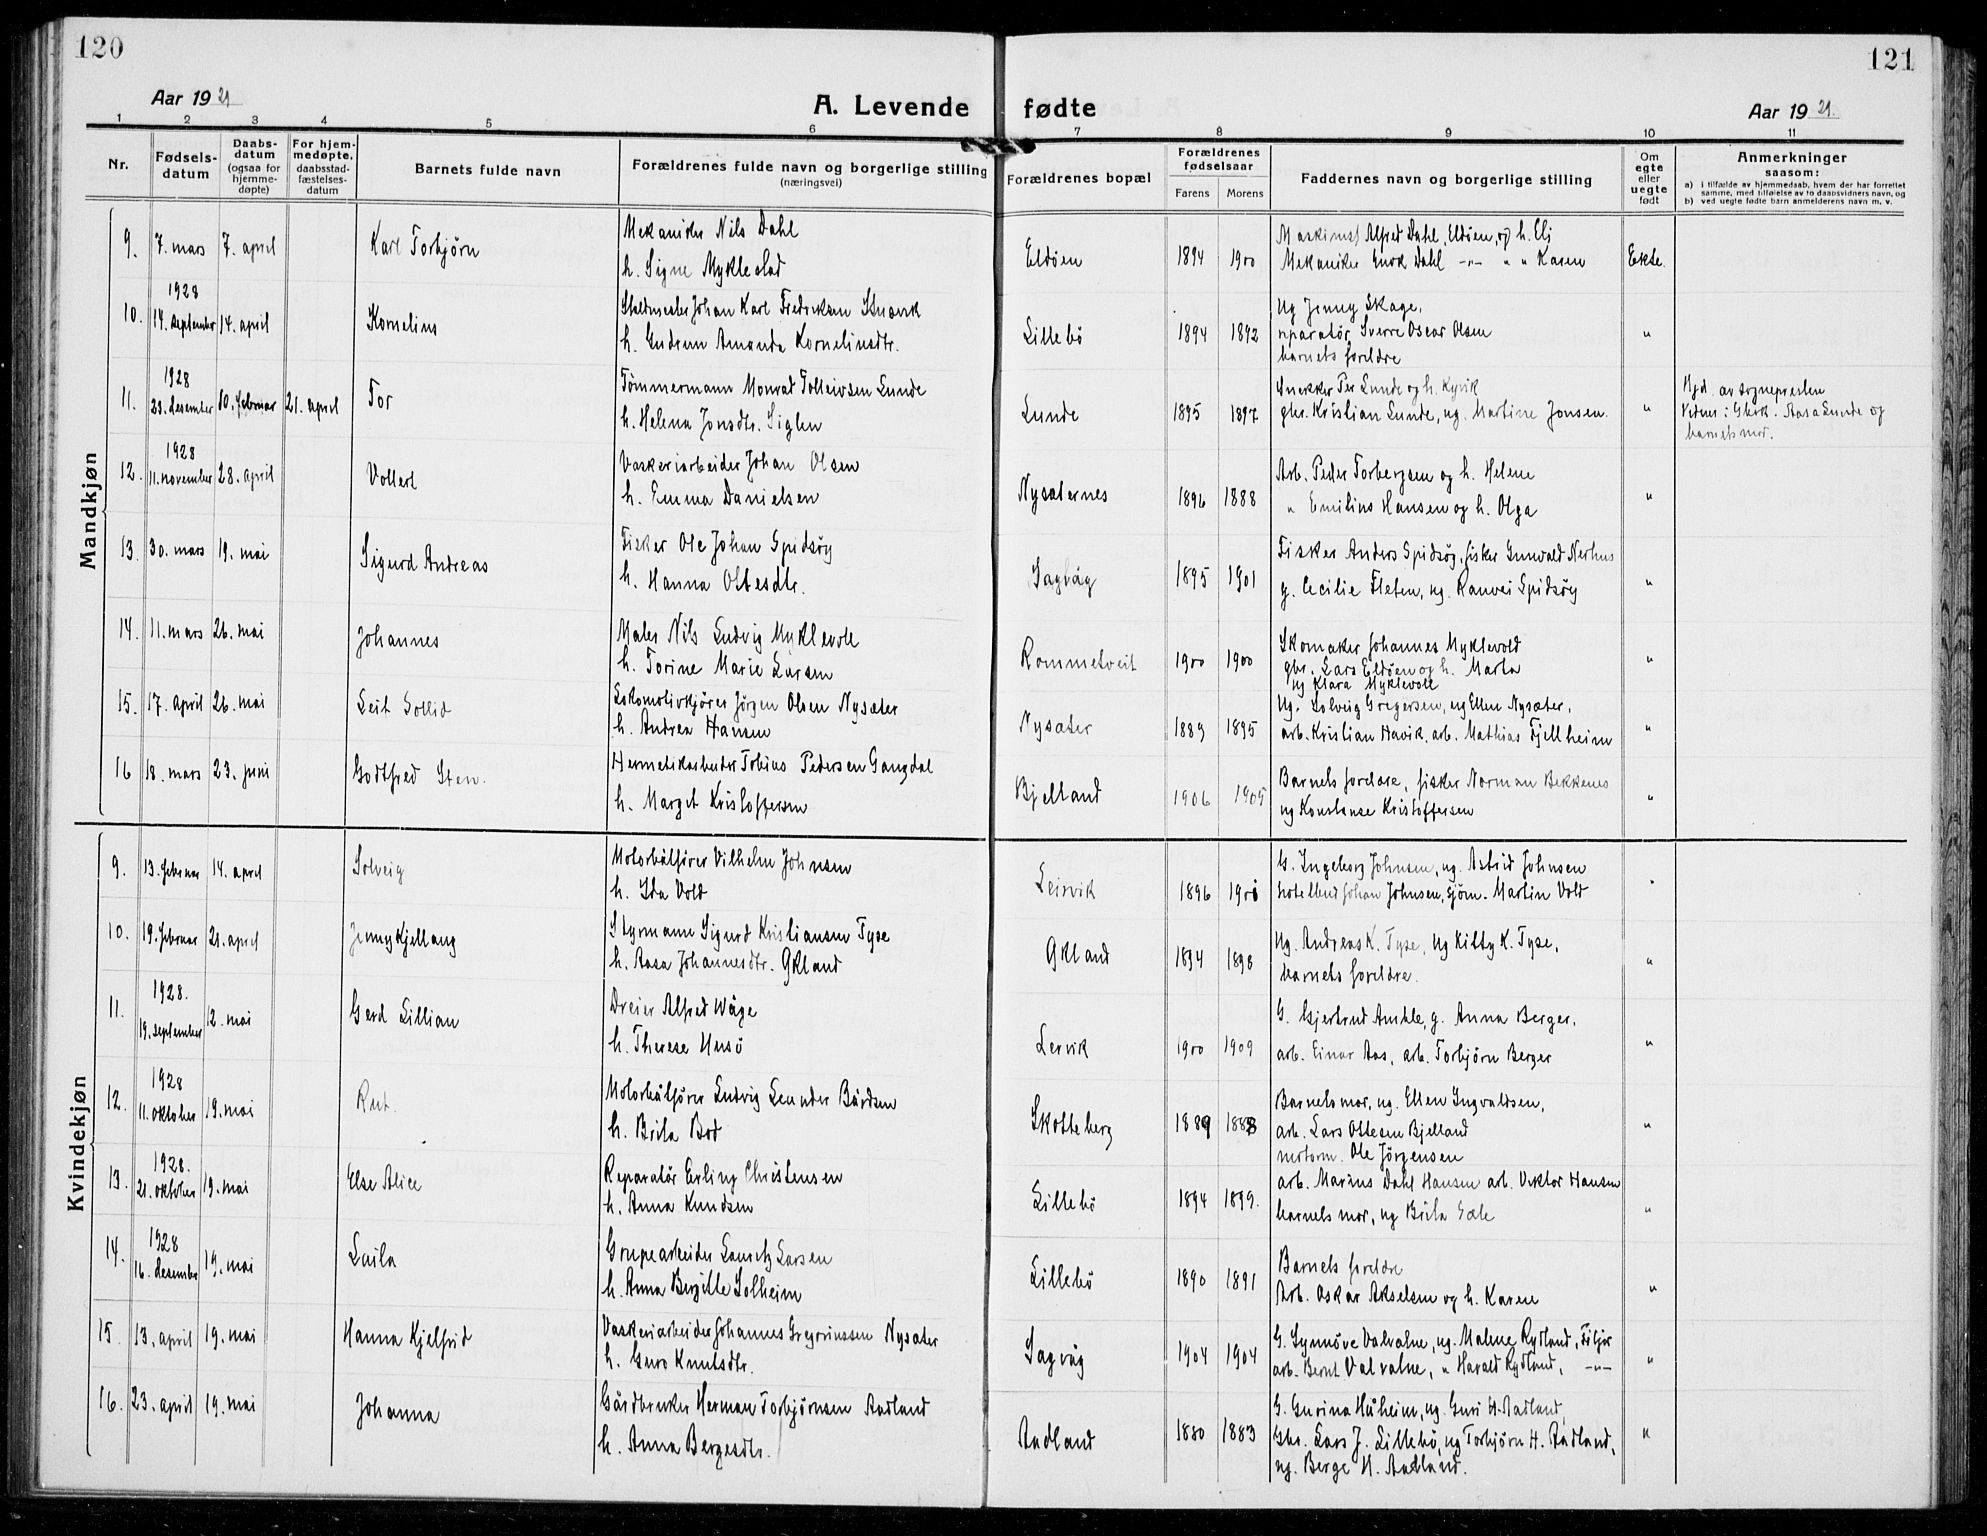 120
121
Aar 1929
A. Levende fødte
Aar 1929.
1 2 3 4 5 6 7 8 9 10 11
Nr.
Fødsels-datum
Daabs-datum (ogsaa for hjemme-døpte)
For hjem-medøpte, daabsstad-fæstelses-datum
Barnets fulde navn
Forældrenes fulde navn og borgerlige stilling (næringsvei)
Forældrenes bopæl
Forældrenes fødselsaar
Farens Morens
Faddernes navn og borgerlige stilling
Om egte eller uegte født
Anmerkninger saasom:
a) i tilfælde av hjemmedaab, hvem der har forrettet samme, med tilføielse av to daabsvidners navn, og
b) ved uegte fødte barn anmelderens navn m. v.
Mandkjøn
9. 7. mars 7. april Karl Torbjørn Mekaniker Nils Dahl
h. Signe Myklestad
Eldøen 1894 1900 Maskinist Alfred Dahl, Eldøen, og h. Eli
Mekaniker Enok Dahl -"- " " Karen Ekte.
10. 1928 14. september 14. april Kornelius Johan Karl Fredriksen
h. Gudrun Amanda Korneliusdtr.
Lillebö 1894 1892 Ug Jenny Skage,
reparatør Sverre Oscar Olsen
barnets foreldre "
11. 1928 23. desember 10. februar 21. april Tor Tømmermann Monrad Tolleivsen Lunde
h. Helena Jonsdtr. Siglen
Lunde 1895 1897 Snekker Per Lunde og h. Kyvik
gbr. Kristian Lunde, ug. Martine Jonsen. "
Hjd. av sognepresten
Vidner: Aasa Lunde og
barnets mor.
12. 1928 11. november 28. april Vollert Vaskeriarbeider Johan Olsen
h. Emma Danielsen
Nysæternes 1896 1888 Arb. Peder Torbergsen og h. Helene
" Emilius Hansen og h. Olga "
13. 30. mars 19. mai Sigurd Andreas Fisker Ole Johan Spidsøy
h. Hanna Ottesdtr.
Sagvåg 1895 1901 Fisker Anders Spidsøy, fisker Gunvald Nerhus
g. Cecilie Fleten, ug. Ranvei Spidsøy "
14. 11. mars 26. mai Johannes Maler Nils Ludvig Myklevoll
h. Torine Marie Larsen
Rommetveit 1900 1900 Skomaker Johannes Myklevold
gbr. Lars Eldøen og h. Marta
ug Klara Myklevoll "
15. 17. april 26. mai Leif Sollid Lokomotivkjører Jörgen Olsen Nysæter
h. Andrea Hansen
Nysæter 1889 1895 Ug. Solveig Gregersen, ug Ellen Nysæter,
arb. Kristian Havik, arb. Mathias Fjellheim "
16 18. mars 23. juni Godtfred Sten. Hermetikarbeider Tobias Pedersen Gangdal
h. Marget Kristoffersen
Bjelland 1906 1905 Barnets foreldre, fisker Norman Bekkenes
ug Konstanse Kristoffersen "
Kvindekjøn
9. 13. februar 14. april Solveig Motorbåtfører Vilhelm Johnsen
h. Ida Vold
Leirvik 1896 1901 G. Ingeborg Johnsen, ug. Astrid Johnsen
Johan Johnsen, sjöm. Martin Vold "
10. 19. februar 21. april Jenny Kjellaug Styrmann Sigurd Kristiansen Tyse
h. Aasa Johannesdtr. Økland
Økland 1894 1898 Ug. Andreas K. Tyse, ug Kitty K. Tyse,
barnets foreldre. "
11. 1928. 19. september 12. mai Gerd Lillian Dreier Alfred Våge
h. Therese Husö
Lervik 1900 1909 G. Gjertrud Amble, g. Anna Berger,
arb. Einar Aas, arb. Torbjörn Berger "
12. 1928 11. oktober 19. mai Rut. Motorbåtfører Ludvig Leander Bårdsen
h. Brita Bod
Skotteberg 1889 1888 Barnets mor, ug. Ellen Ingvaldsen,
arb. Lars Ottesen Bjelland
motorm. Ole Jörgensen "
13. 1928. 21. oktober 19. mai Else Alice Reparatör Erling Christensen
h. Anna Knudsen
Lillebö 1894 1899. arb. Marius Dahl Hansen arb. Viktor Hansen
barnets mor, ug Brita Sæle "
14. 1928 16. desember 19. mai Laila Grupearbeider Lauritz Larsen
h. Anna Bergitte Solheim
Lillebö 1890 1891 Barnets foreldre
Arb. Oskar Akselsen og h. Karen "
15. 13. april 19. mai Hanna Kjelfrid Vaskeriarbeider Johannes Gregoriussen Nysæter
h. Guro Knutsdtr.
Sagvåg 1904 1904 G. Synnöve Valvatne, ug. Malene Rydland, Fitjar
arb. Bernt Valvatne, " Harald Rydland, -"- "
16. 23. april 19. mai Johanna Gårdbruker Herman Torbjørnsen Aadland
h. Anna Bergesdtr.
Aadland 1880 1883 G. Gurina Håheim, ug. Guri H. Aadland,
Gbr. Lars J. Lillebö, ug Torbjörn H. Aadland,
ug. Berge H. Aadland. "